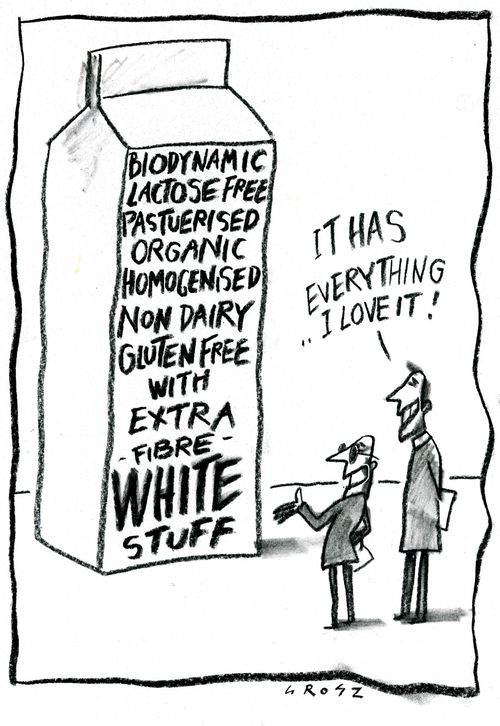 BIODYNAMIC
LACTOSE FREE
PASTUERISED
ORGANIC
HOMOGENISED
NON DAIRY
GLUTEN FREE
WITH
EXTRA
-FIBRE-
WHITE
STUFF
IT HAS
EVERYTHING
.. I LOVE IT!
GROSZ